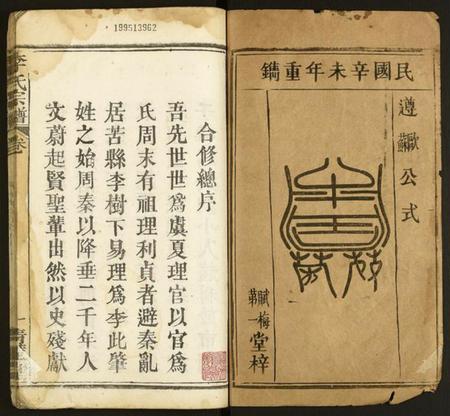 民國辛未年重鐫
遵歐蘇公式
賦梅堂梓
第一
199513962
合修總序
吾先世世爲虞夏理官以官爲
氏周末有祖理利貞者避秦亂
居苦縣李樹下易理爲李此肇
姓之始周秦以降垂二千年人
文蔚起賢聖輩出然以史殘獻
李氏宗譜
卷
一